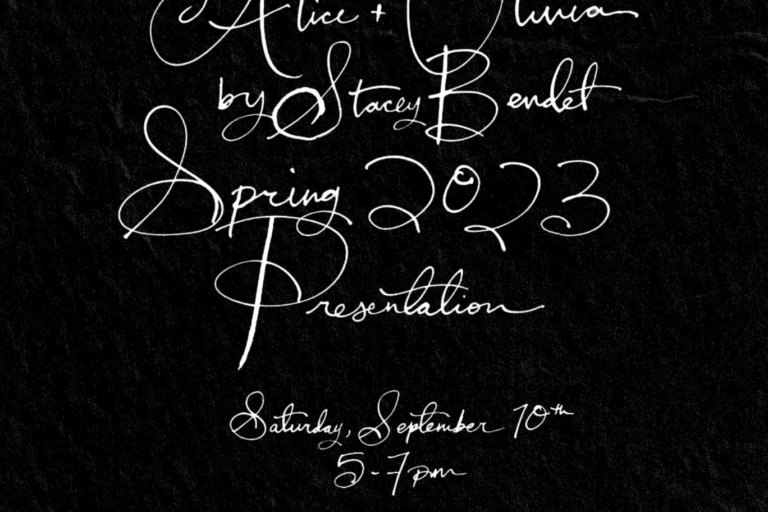 Alice + Olivia
by Stacey Bendet
Spring 2023
Presentation
Saturday, September 10th
5-7pm